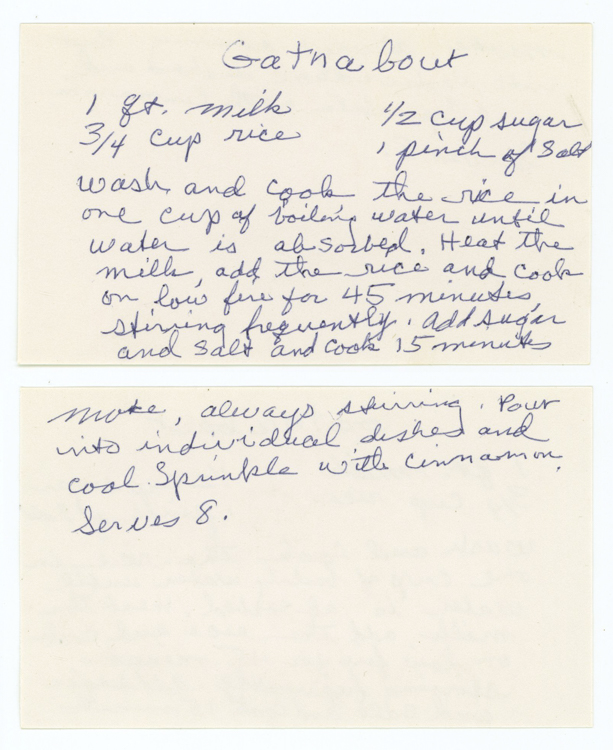 Gatnabour
1 qt. milk
1/2 cup sugar
3/4 cup rice
1 pinch of Salt
Wash and cook the rice in
one cup of boiling water until
water is absorbed. Heat the
milk, add the rice and cook
on low fire for 45 minutes,
stirring frequently. Add sugar
and salt and cook 15 minutes
more, always stirring. Pour
into individual dishes and
cool. Sprinkle with cinnamon.
Serves 8.